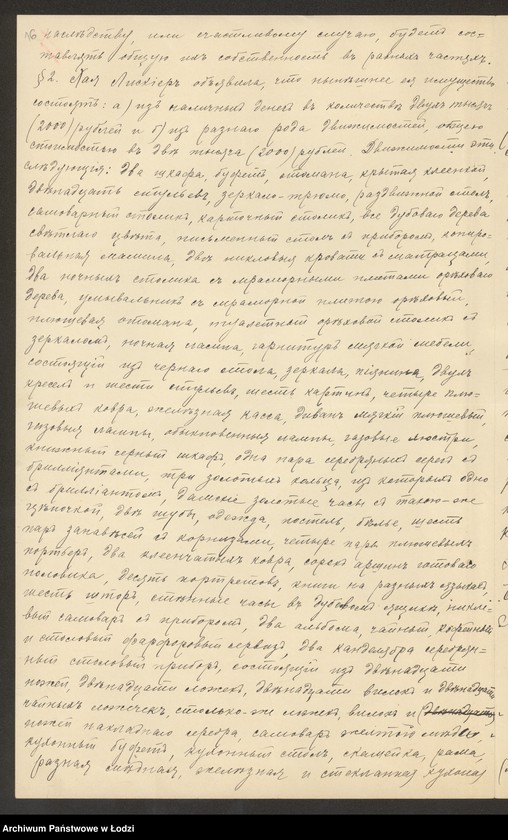 наслѣдству, или счастливому случаю, будетъ сос-
тавлять общую ихъ собственность въ равныхъ частяхъ.
§ 2. Лая Лискеръ объявила, что нынѣшнее ея имущество
состоитъ: а) изъ наличныхъ денегъ въ количествѣ двухъ тысячъ
(2000) рублей и б) изъ разнаго рода движимостей, общею
стоимостью въ двѣ тысячи (2000) рублей. Движимости эти
слѣдующія: два шкафа, буфетъ, отомана, крытая клеенкой,
двѣнадцать стульевъ, зеркало-трюмо, раздвижной столъ,
самоварный столикъ, карточный столикъ, все дубоваго дерева
свѣтлаго цвѣта, письменный столъ съ приборомъ, копиро-
вальная машина, двѣ никловыя кровати съ матрацами,
два ночныхъ столика съ мраморными плитами орѣховаго
дерева, умывальникъ съ мраморной плитою орѣховый,
плюшевая отомана, туалетный орѣховый столикъ съ
зеркаломъ, ночная лампа, гарнитуръ мягкой мебели,
состоящій изъ чернаго стола, зеркала, двухъ
креселъ и шести стульевъ, шесть картинъ, четыре плю-
шевыхъ ковра, желѣзная касса, диванъ мягкій плюшевый,
газовыя лампы, обыкновенныя лампы, газовые люстры,
книжный черный шкафъ, одна пара серебряныхъ серегъ съ
брилліантами, три золотыхъ кольца, изъ которыхъ одно
съ брилліантомъ, дамскіе золотые часы съ такою-же
цѣпочкой, двѣ шубы, одежда, постель, бѣлье, шесть
паръ занавѣсей съ карнизами, четыре пары плюшевыхъ
портьеръ, два клеенчатыхъ ковра, сорокъ аршинъ готоваго
половика, десять портретовъ, книги на разныхъ языкахъ,
шесть шторъ, стѣнные часы въ дубовомъ ящикѣ, никле-
вый самоваръ съ приборомъ, два альбома, чайный,
и столовый фарфоровый сервизъ, два канделябра серебрян-
ный столовый приборъ, состоящій изъ двѣнадцати
ножей, двѣнадцати ложекъ, двѣнадцати вилокъ и двѣнадцати
чайныхъ ложечекъ, столько-же ложекъ, вилокъ и
ножей накладнаго серебра, самоваръ желтой мѣди,
кухонный буфетъ, кухонный столъ, скамейка, рама,
разная мѣдная, желѣзная и стеклянная кухонная
Archiwum Państwowe w Łodzi